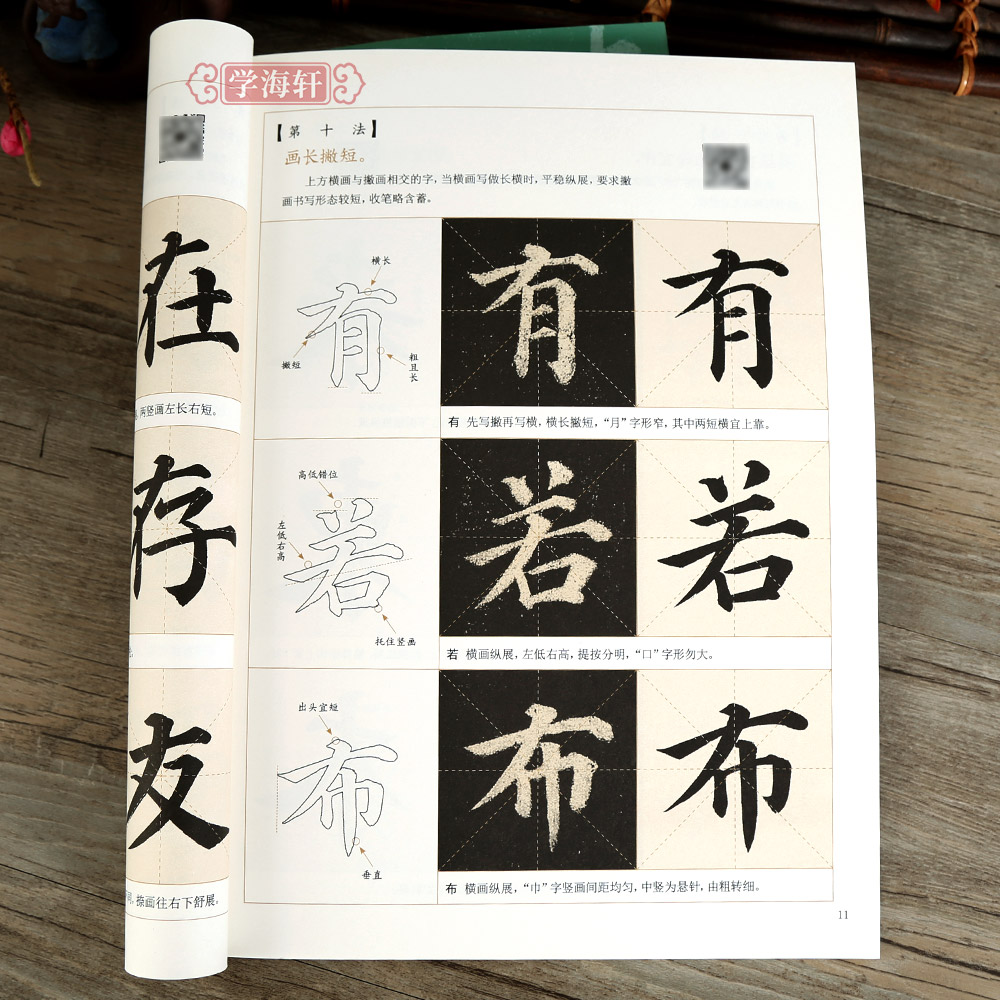 学海轩
在
两竖画左长右短。
存
友
捺画往右下舒展。
【第十法】
画长撇短。
上方横画与撇画相交的字，当横画写做长横时，平稳纵展，要求撇
画书写形态较短，收笔略含蓄。
横长
撇短
粗且长
有
有
有
有 先写撇再写横，横长撇短，“月”字形窄，其中两短横宜上靠。
高低错位
左低右高
托住竖画
若
若
若
若 横画纵展，左低右高，提按分明，“口”字形勿大。
出头宜短
垂直
布
布
布
布 横画纵展，“巾”字竖画间距均匀，中竖为悬针，由粗转细。
11